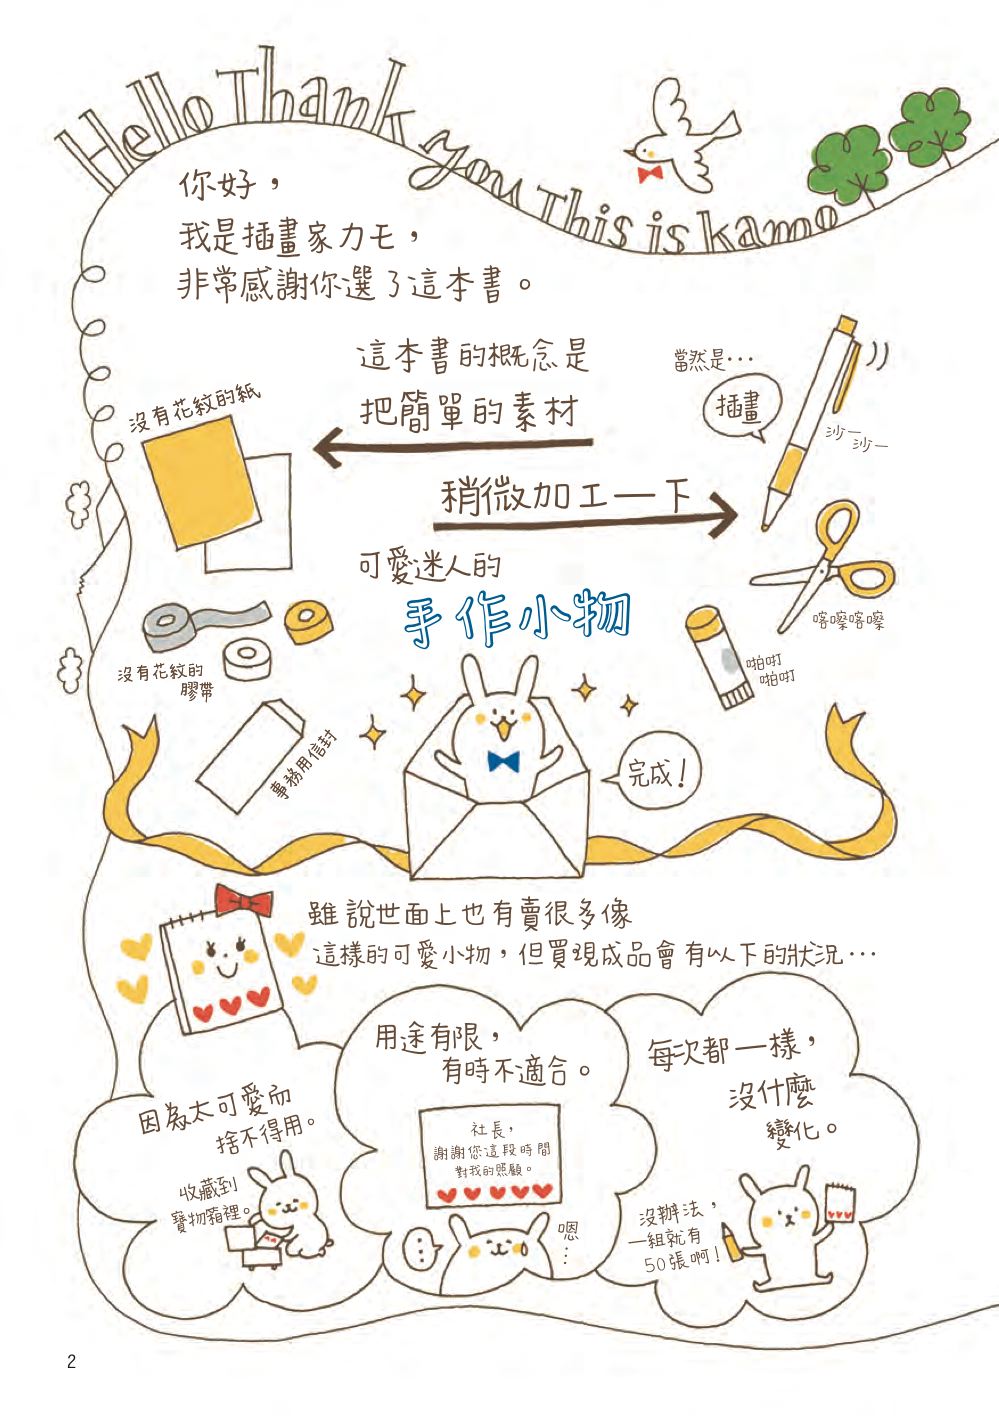 Hello Thank you This is kamo
你好，
我是插畫家カモ，
非常感謝你選了這本書。
這本書的概念是
把簡單的素材
稍微加工一下
可愛迷人的
手作小物
沒有花紋的紙
當然是…
插畫
沙—
沙—
喀嚓喀嚓
啪叮
啪叮
沒有花紋的
膠帶
事務用信封
完成！
雖說世面上也有賣很多像
這樣的可愛小物，但買現成品會有以下的狀況…
因為太可愛而
捨不得用。
收藏到
寶物箱裡。
用途有限，
有時不適合。
社長，
謝謝您這段時間
對我的照顧。
嗯…
每次都一樣，
沒什麼
變化。
沒辦法，
一組就有
50張啊！
2